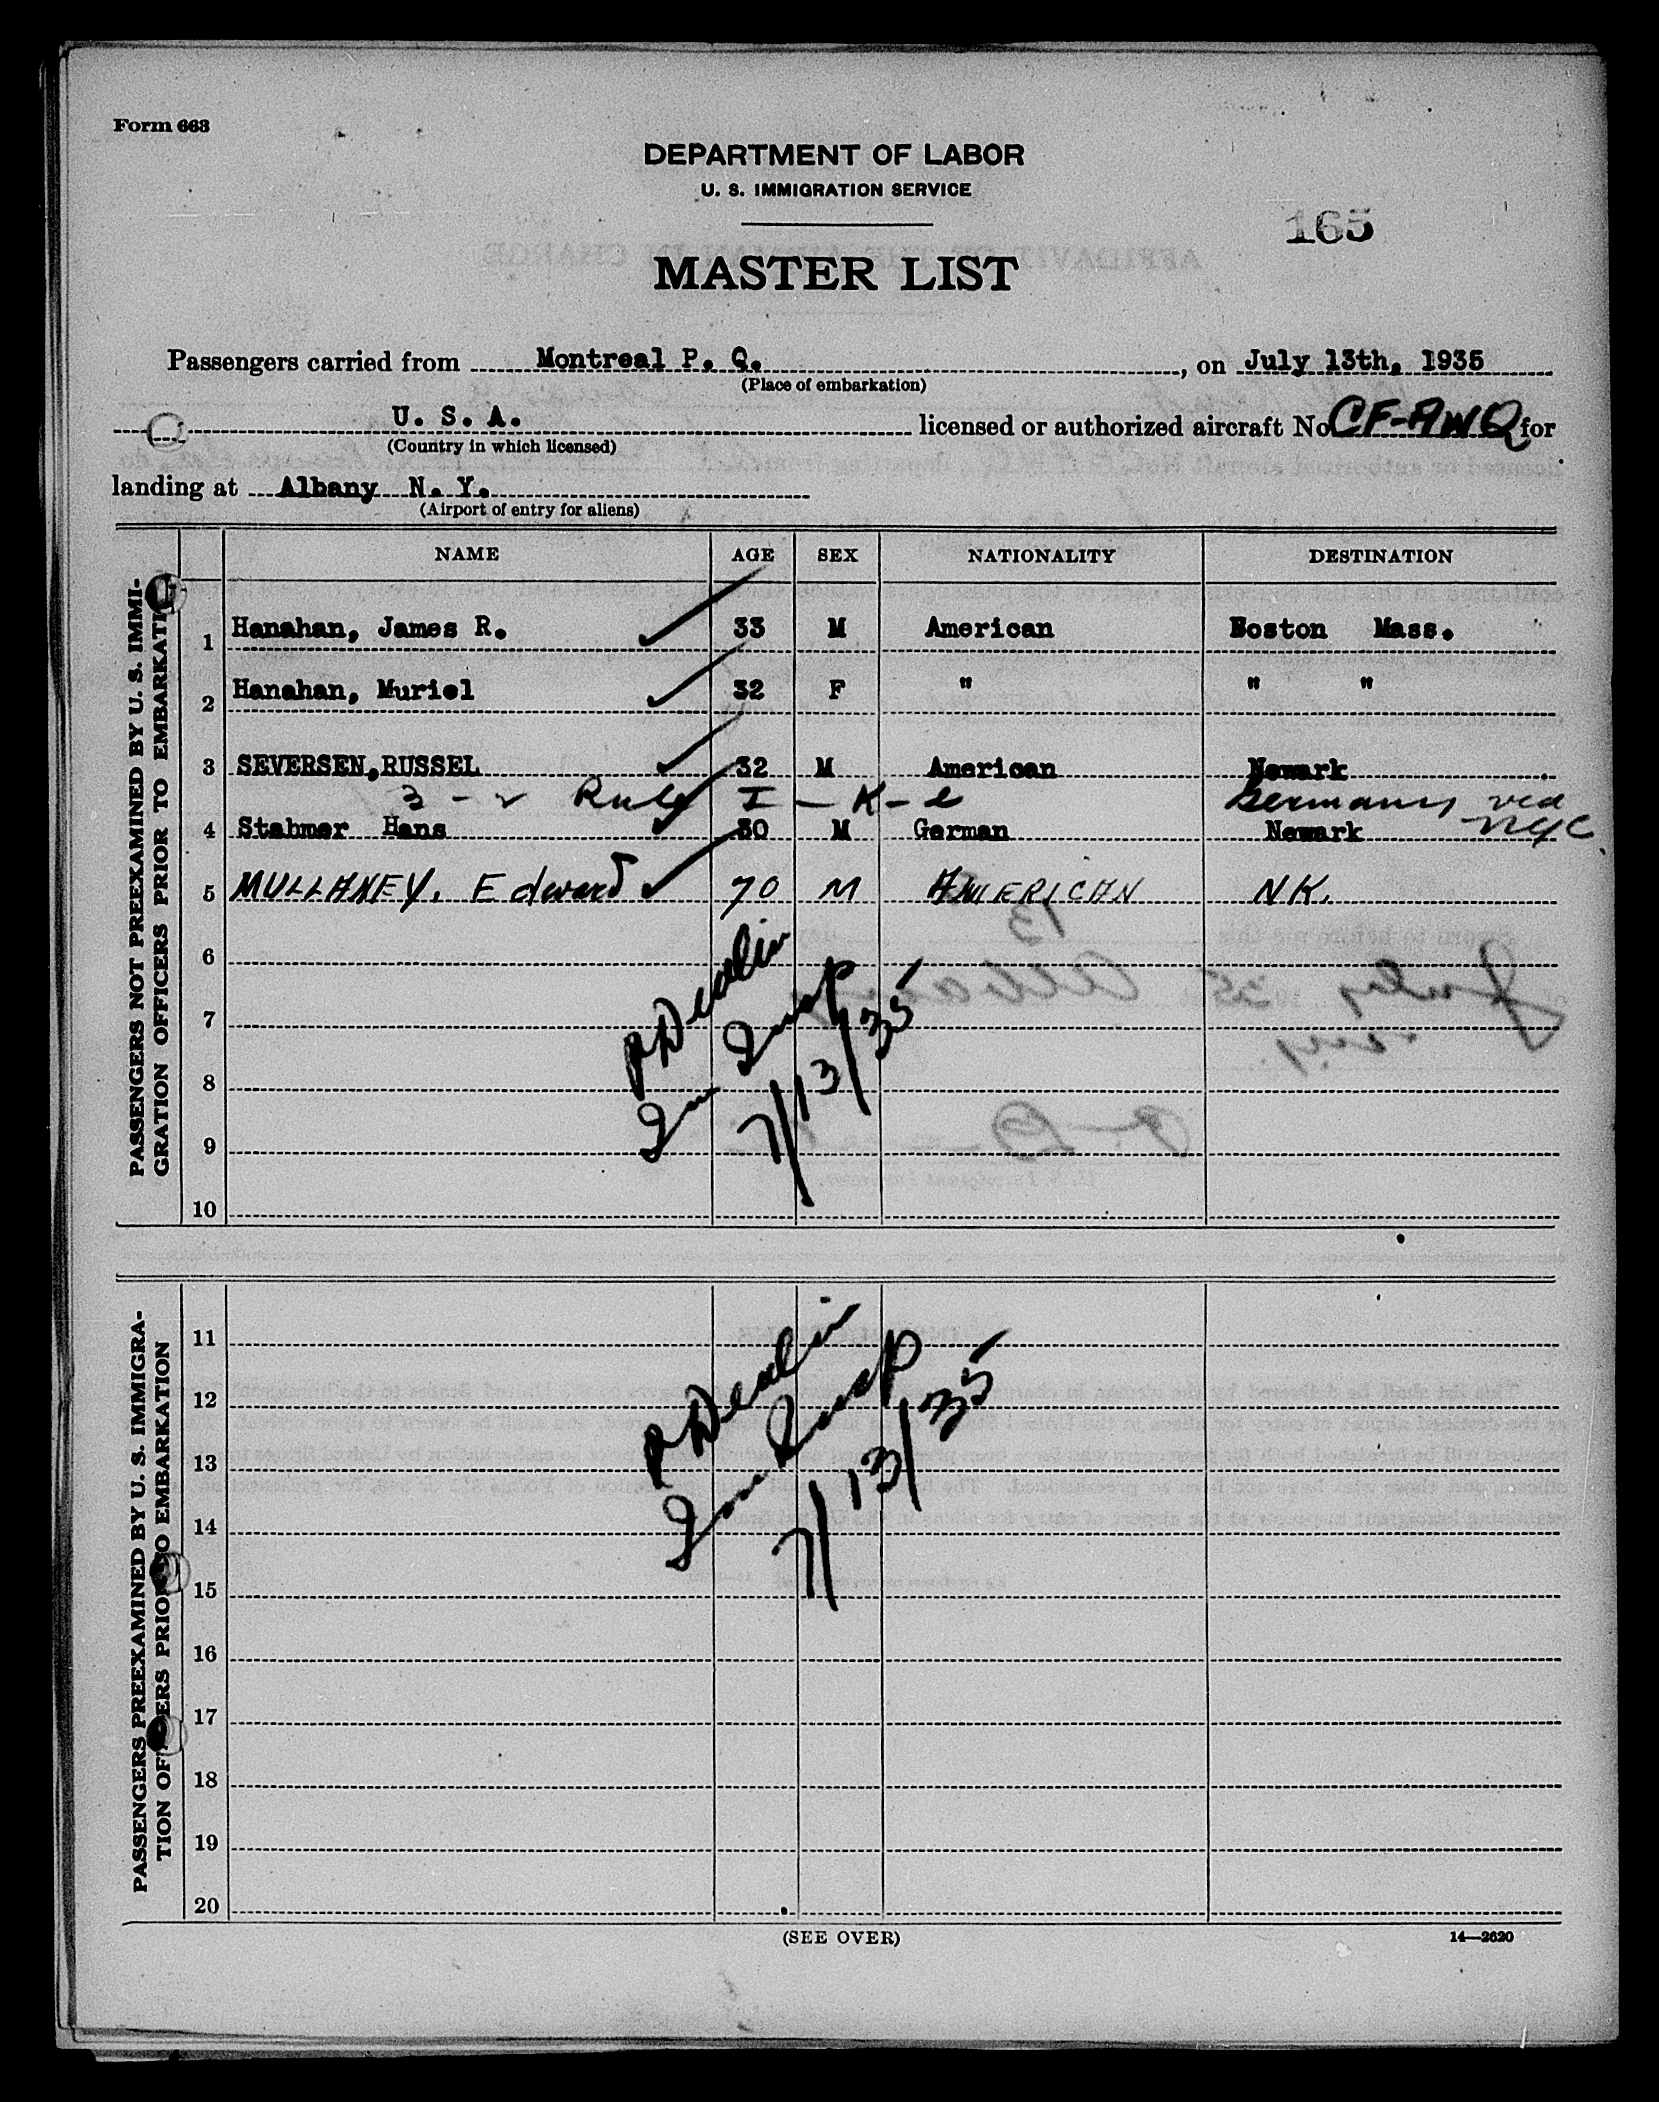 Form 663
DEPARTMENT OF LABOR
U. S. IMMIGRATION SERVICE
165
MASTER LIST
Passengers carried from Montreal P. Q., on July 13th, 1935
(Place of embarkation)
U. S. A. licensed or authorized aircraft No CF-AWQ for
(Country in which licensed)
landing at Albany N. Y.
(Airport of entry for aliens)
PASSENGERS NOT PREEXAMINED BY U. S. IMMI-
GRATION OFFICERS PRIOR TO EMBARKATI
NAME AGE SEX NATIONALITY DESTINATION
1 Hanahan, James R. 33 M American Boston Mass.
2 Hanahan, Muriel 32 F " " "
3 SEVERSEN,RUSSEL 32 M American Newark
3 - 2 Rule I - K - e Germany via
4 Stabmer Hans 30 M German Newark NYC
5 MULLANEY, Edward 70 M AMERICAN NK.
6
7
8
9
10
P Devlin
Imm Insp
7/13/35
PASSENGERS PREEXAMINED BY U. S. IMMIGRA-
TION OF ERS PRIO O EMBARKATION
11
12
13
14
15
16
17
18
19
20
P Devlin
Imm Insp
7/13/35
(SEE OVER)
14—2620